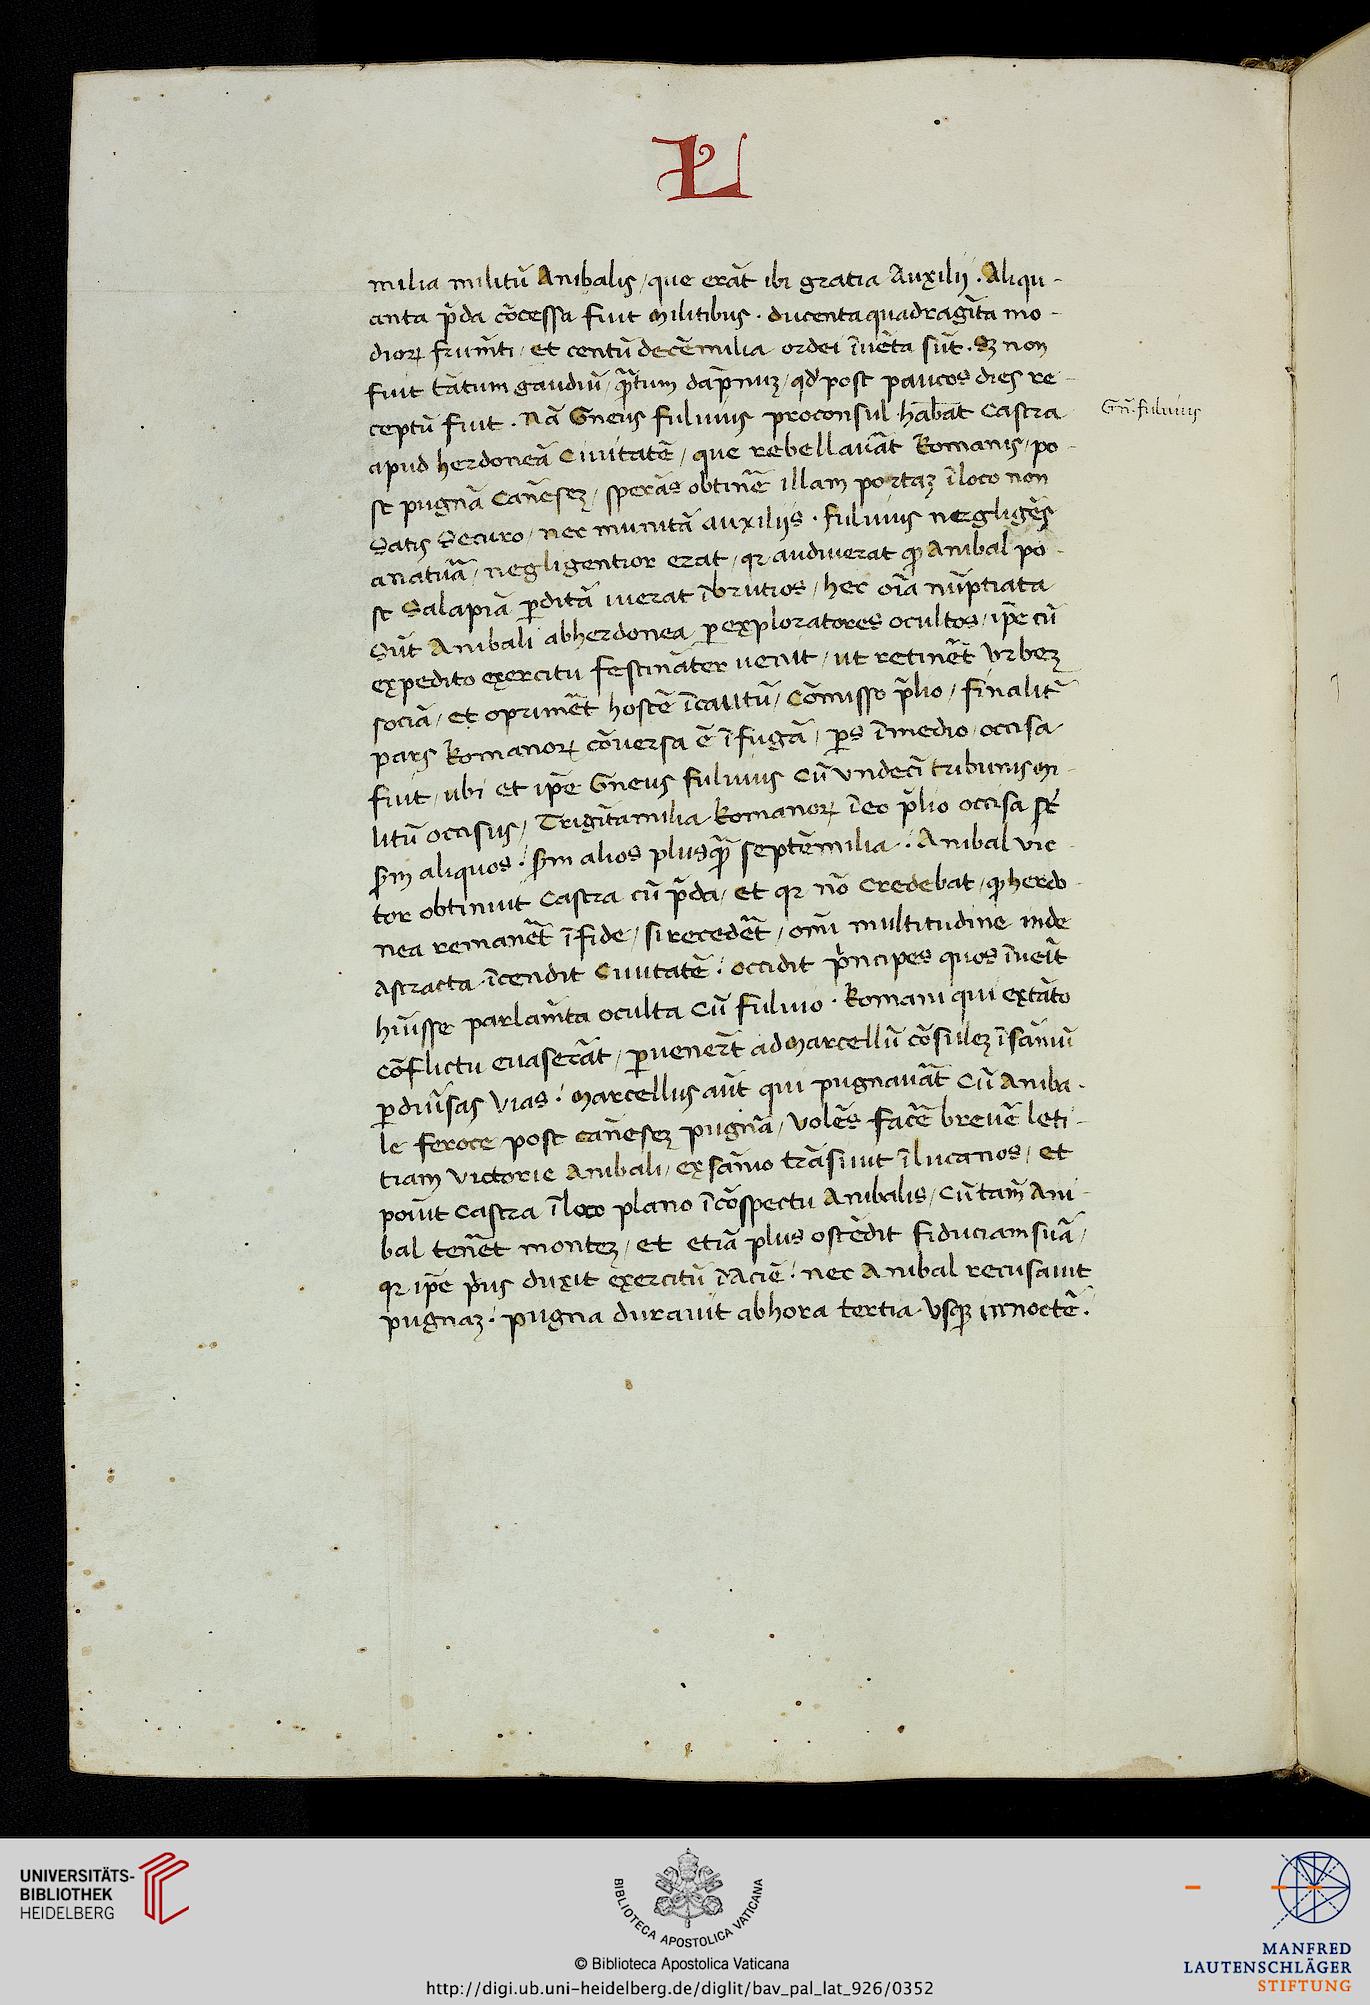 L
milia militū Anibalis / que erāt ibi gratia Auxilij . Aliqu-
anta p̄da cōcessa fuit Militibus . ducenta quadragīta mo-
dioꝝ frum̄ti / et centū decē milia ordei īuēta sūt . Sꝫ non
fuit tātum gaudiū / q̄tum dāpnuꝫ / qđ post paucos dies re-
ceptū fuit . Nā Gneus fuluius proconsul habēat Castra
Gn̄. fuluius
apud herdoneā Ciuitatē / que rebellauāt Romanis / po-
st pugnā Canēseꝫ / sperās obtinē illam portaꝫ ī loco non
Satis Securo / nec munitā auxilijs . fuluius negligēs
a natuā / negligentior erat / qꝛ audiuerat ꝙ Anibal po-
st Salapiā ꝑditā iuerat ī brutios / hec oīa nūptiata
Sūt Anibali ab herdonea ꝑ exploratores ocultos / ip̄e cū
expedito exercitu festināter uenit / ut retinēt Vrbeꝫ
sociā / et oprimēt hostē īcautū / Cōmisso p̄lio / finalit̄
pars Romanoꝝ cōuersa ē ī fugā / ꝑs ī medio occisa
fuit / ubi et ip̄e Gneus fuluius Cū Vndecī tribunis mi-
litū occisus / Trigīta milia Romanoꝝ ī eo p̄lio occisa st̄
s̄m aliquos . s̄m alios plusq̄ septē milia . Anibal vic-
tor obtinuit Castra cū p̄da / et qꝛ nō Credebat / ꝙ herdo-
nea remanēt ī fide / si recedēt / om̄i multitudine inde
Astracta īcendit Ciuitatē . occidit p̄ncipes quos īueīt
hūisse parlam̄ta oculta Cū fuluio . Romani qui ex tāto
cōflictu euaserāt / ꝑuener̄t ad Marcellū cōsuleꝫ ī sāniū
ꝑ diūsas Vias . Marcellus aūt qui pugnauāt Cū Aniba-
le feroce post canēseꝫ pugnā / Volēs facē breuē leti-
tiam Victorie Anibali / ex sānio trāsiuit ī lucanos / et
poīut Castra ī loco plano ī cōspectu Anibalis / Cū tam̄ Ani-
bal tenēt monteꝫ / et etiā plus ostēdit fiduciam suā /
qꝛ ip̄e p̄us duxit exercitū ī Aciē . nec Anibal recusauit
pugnaꝫ . pugna durauit ab hora tertia Vsqꝫ in noctē .
UNIVERSITÄTS-
BIBLIOTHEK
HEIDELBERG
BIBLIOTECA APOSTOLICA VATICANA
© Biblioteca Apostolica Vaticana
http://digi.ub.uni-heidelberg.de/diglit/bav_pal_lat_926/0352
MANFRED
LAUTENSCHLÄGER
STIFTUNG